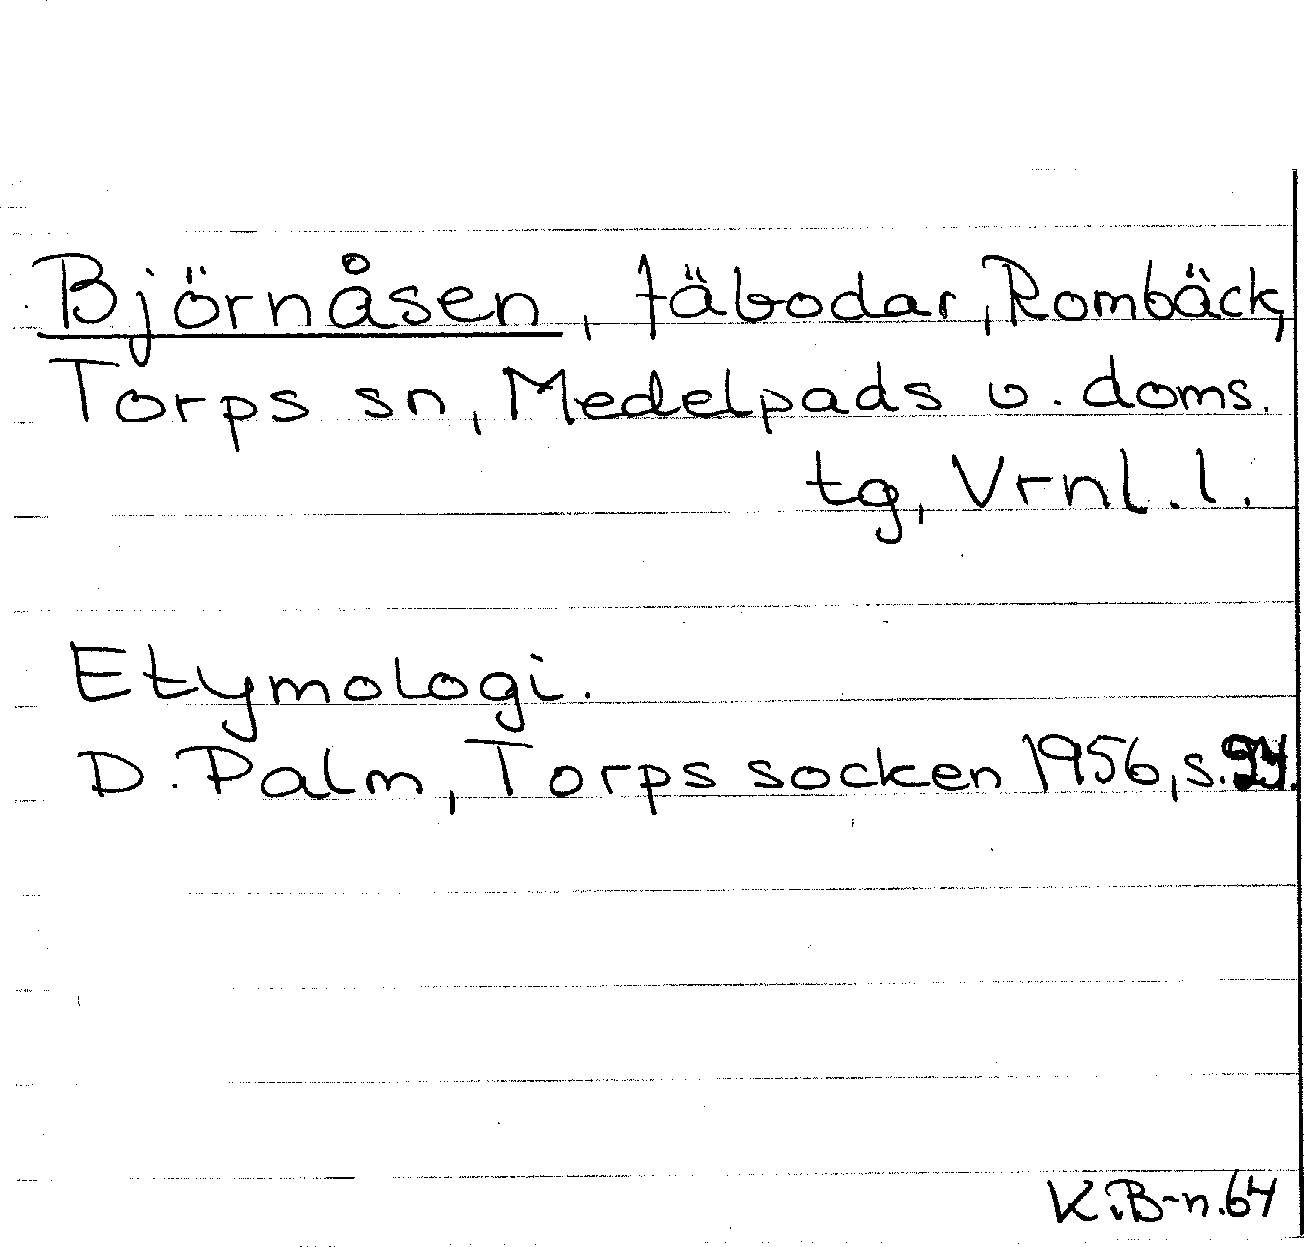 Björnåsen, fäbodar, Rombäck,
Torps sn, Medelpads v. doms.
tg, Vrnl. l.
Etymologi.
D. Palm, Torps socken 1956, s.
K.B-n. 64